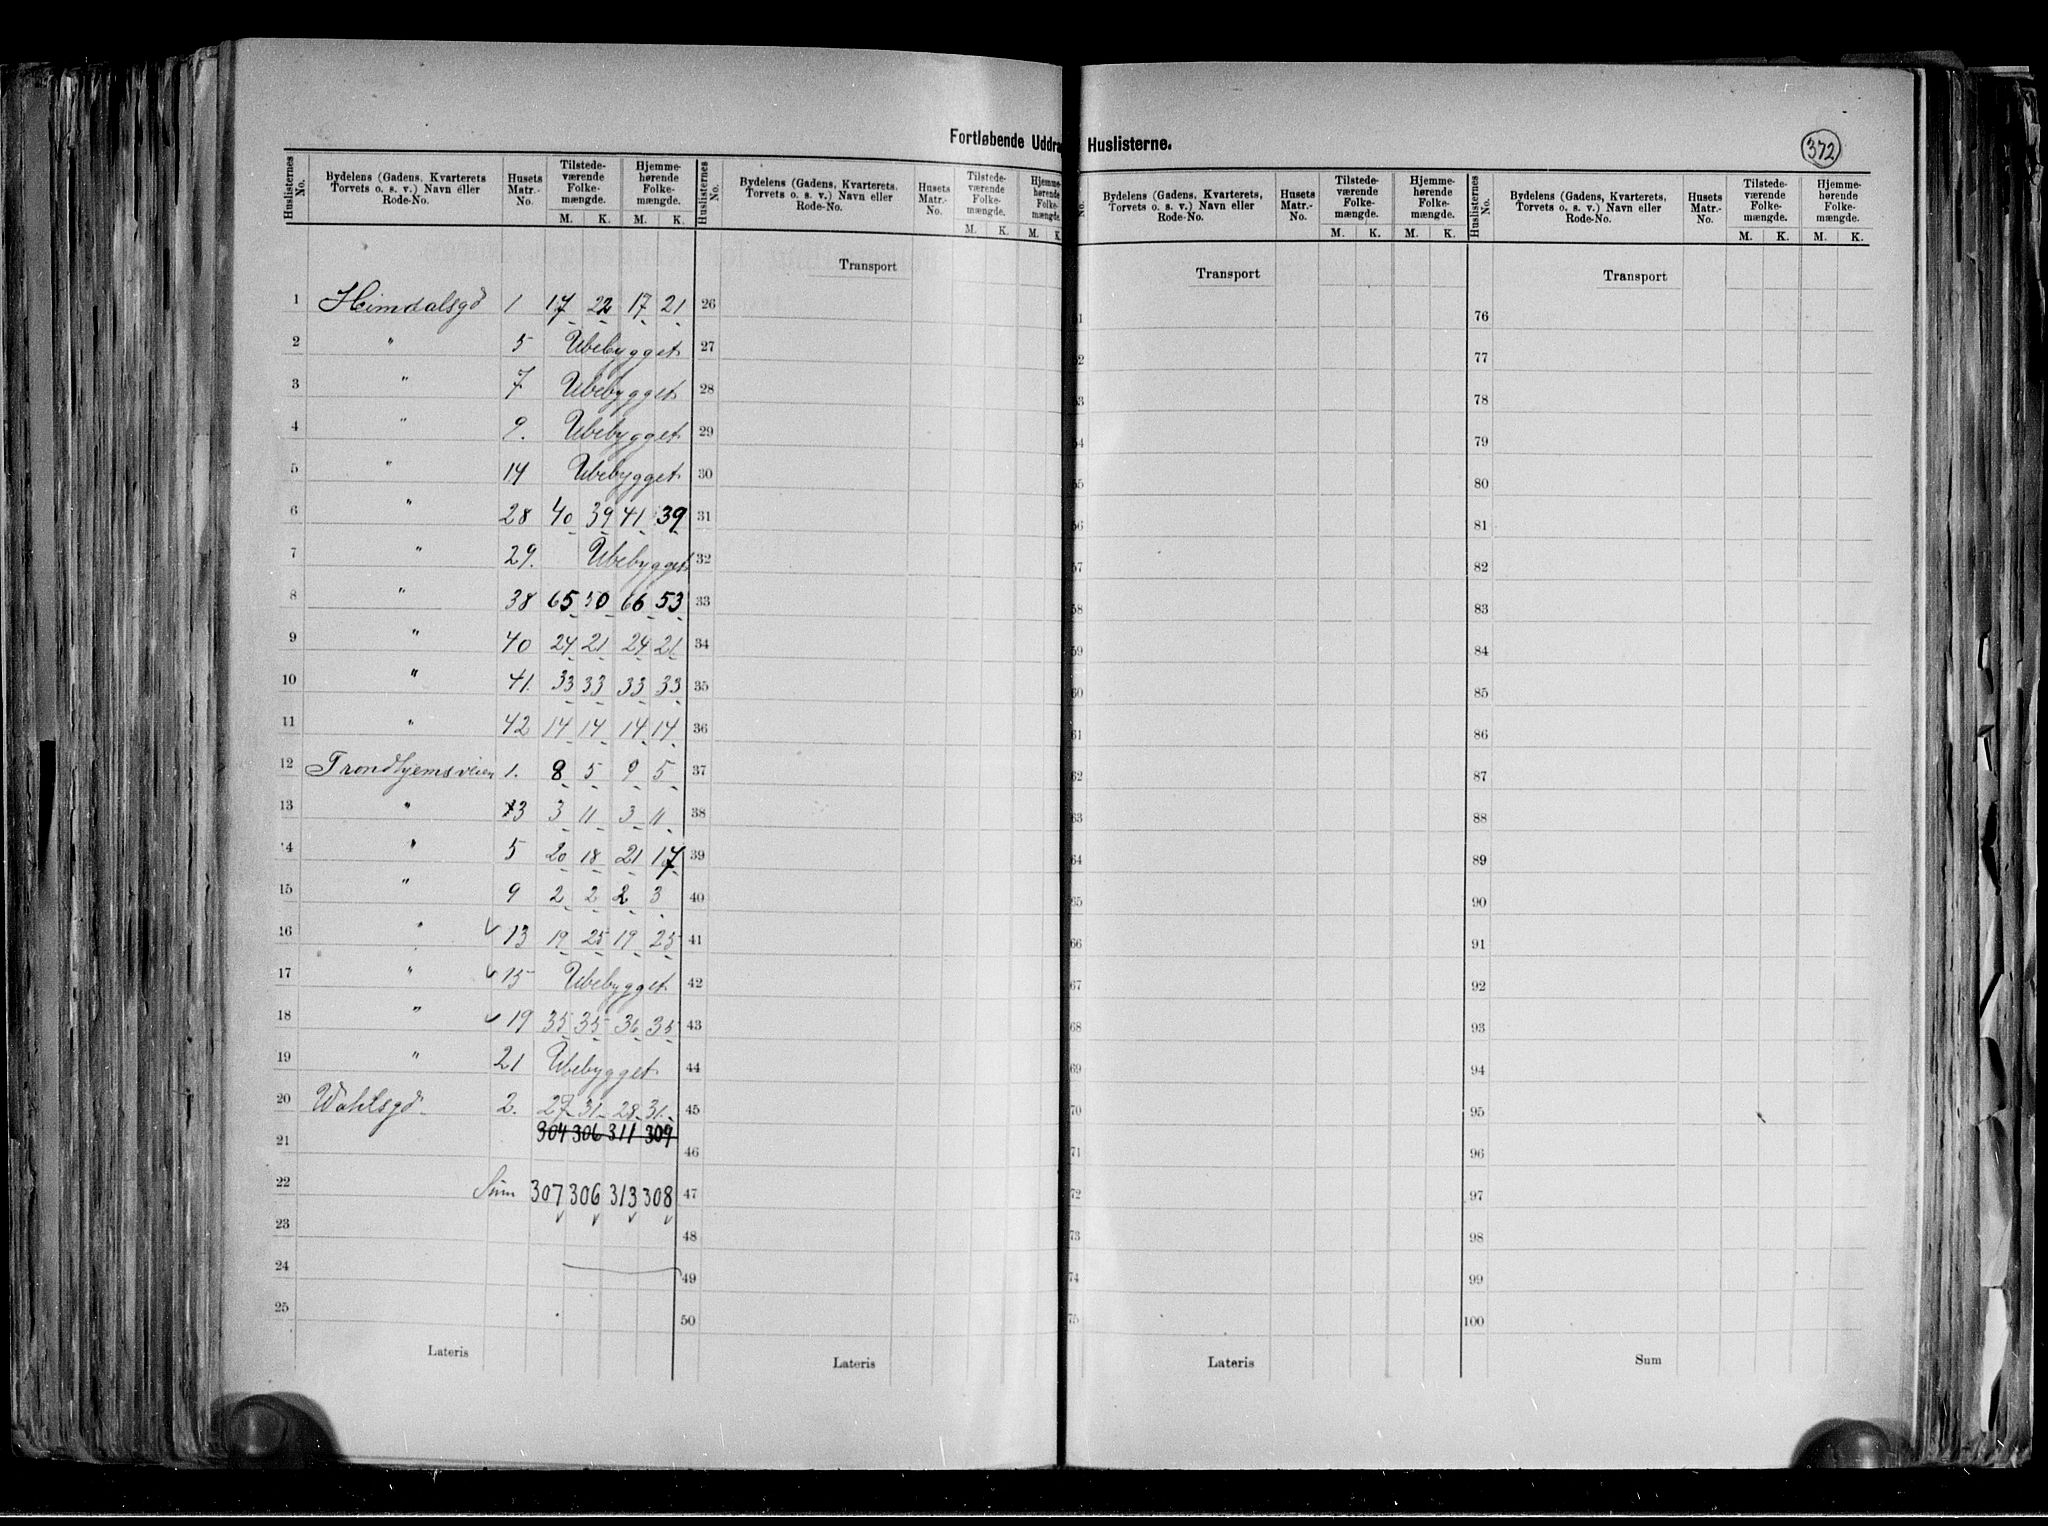 Fortløbende Uddra Huslisterne.
372
Huslisternes No. | Bydelens (Gadens, Kvarterets Torvets o. s. v.) Navn eller Rode-No. | Husets Matr.-No. | Tilstedeværende Folkemængde. M. K. | Hjemmehørende Folkemængde. M. K.
1 Heimdalsgd 1 17 22 17 21
2 " 5 Ubebygget
3 " 7 Ubebygget
4 " 9. Ubebygget
5 " 14 Ubebygget
6 " 28 40 39 41 39
7 " 29. Ubebygget
8 " 38 65 50 66 53
9 " 40 24 21 24 21
10 " 41. 33 33 33 33
11 " 42 14 14 14 14
12 Trondhjemsveien 1. 8 5 9 5
13 " 3 3 11 3 11
14 " 5 20 18 21 17
15 " 9 2 2 2 3
16 " 13 19 25 19 25
17 " 15 Ubebygget
18 " 19 35 35 36 35
19 " 21 Ubebygget
20 Wahlsgd. 2. 27 31 28 31
21 304 306 311 309
22 Sum 307 306 313 308
23
24
25
Lateris
Huslisternes No. | Bydelens (Gadens, Kvarterets, Torvets o. s. v.) Navn eller Rode-No. | Husets Matr.-No. | Tilstedeværende Folkemængde. M. K. | Hjemmehørende Folkemængde. M. K.
Transport
26
27
28
29
30
31
32
33
34
35
36
37
38
39
40
41
42
43
44
45
46
47
48
49
50
Lateris
No. | Bydelens (Gadens, Kvarterets, Torvets o. s. v.) Navn eller Rode-No. | Husets Matr.-No. | Tilstedeværende Folkemængde. M. K. | Hjemmehørende Folkemængde. M. K.
Transport
51
52
53
54
55
56
57
58
59
60
61
62
63
64
65
66
67
68
69
70
71
72
73
74
75
Lateris
Huslisternes No. | Bydelens (Gadens, Kvarterets, Torvets o. s. v.) Navn eller Rode-No. | Husets Matr.-No. | Tilstedeværende Folkemængde. M. K. | Hjemmehørende Folkemængde. M. K.
Transport
76
77
78
79
80
81
82
83
84
85
86
87
88
89
90
91
92
93
94
95
96
97
98
99
100
Sum